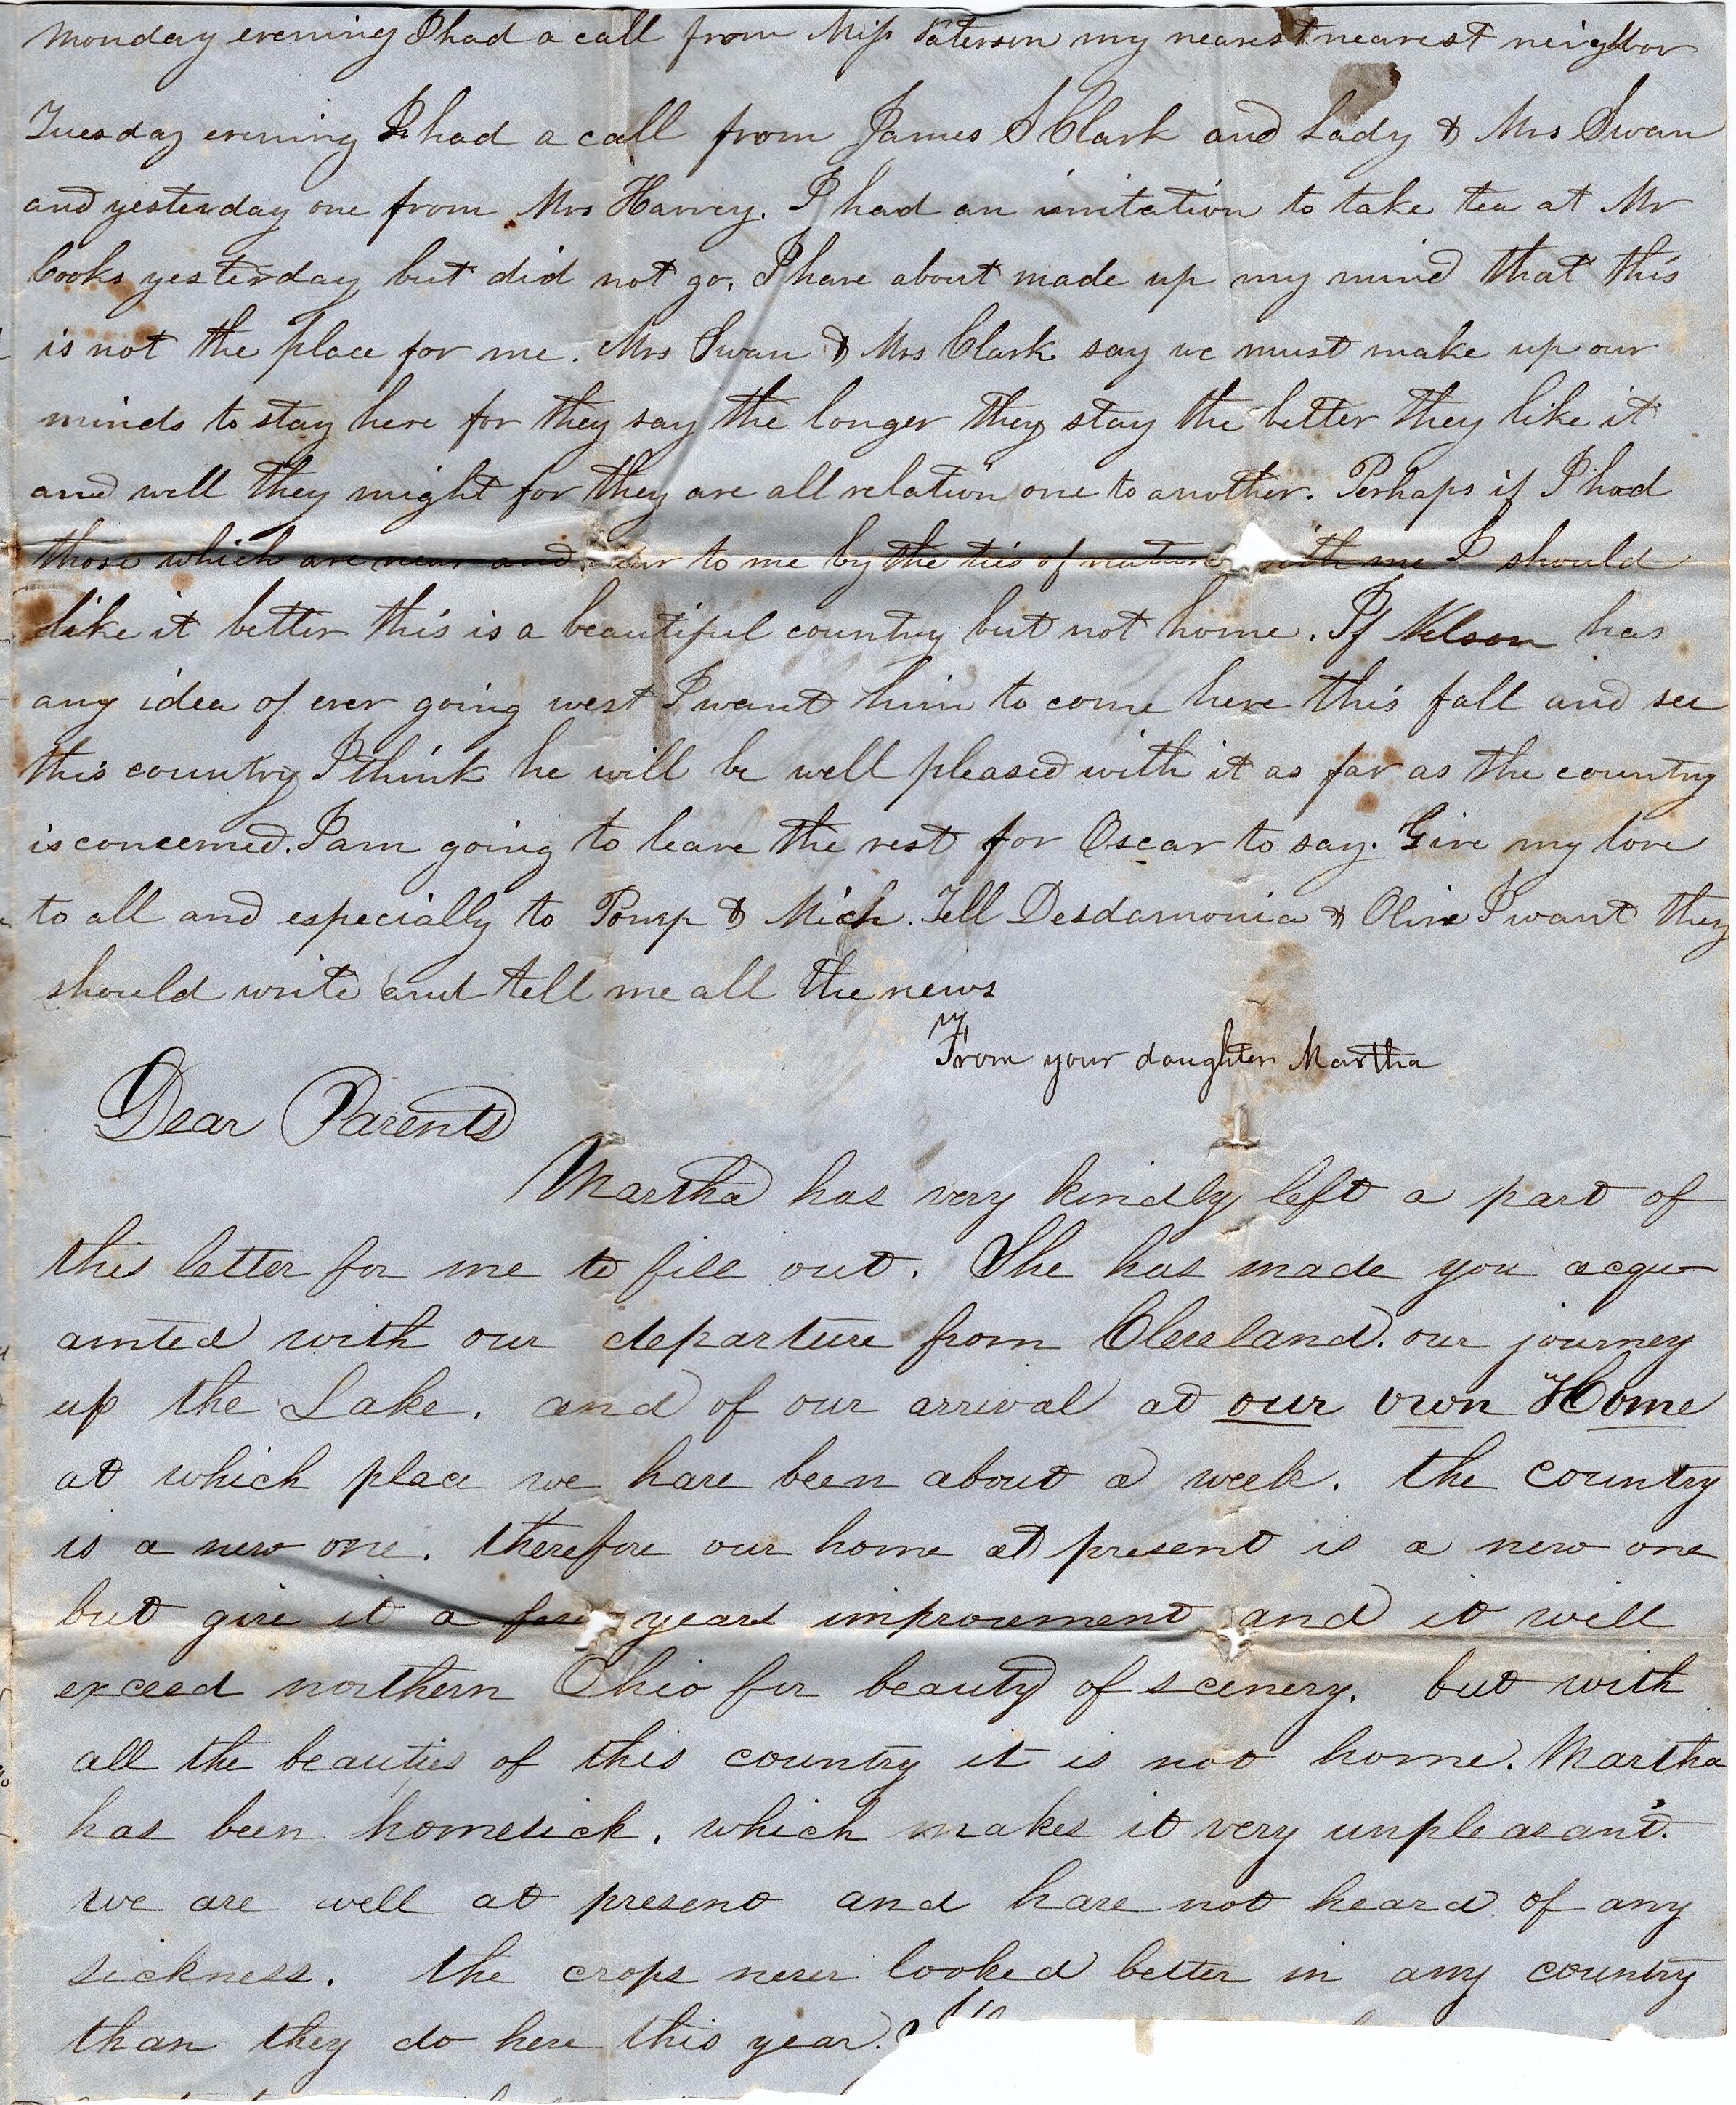 Monday evening I had a call from Miss Paterson my nearest nearest neighbor
Tuesday evening I had a call from James S Clark and Lady & Mrs Swan
and yesterday one from Mrs Harvey. I had an invitation to take tea at Mr
Cooks yesterday but did not go. I have about made up my mind that this
is not the place for me. Mrs Swan & Mrs Clark say we must make up our
minds to stay here for they say the longer they stay the better they like it
and well they might for they are all relation one to another. Perhaps if I had
those which are near and dear to me by the ties of nature with me I should
like it better this is a beautiful country but not home. If Nelson has
any idea of ever going west I want him to come here this fall and see
this country I think he will be well pleased with it as far as the country
is concerned. I am going to leave the rest for Oscar to say. Give my love
to all and especially to Pomp & Mich. Tell Desdamonia & Olive I want they
should write and tell me all the news
From your daughter Martha
Dear Parents
Martha has very kindly left a part of
this letter for me to fill out. She has made you acqu
ainted with our departure from Cleveland. our journey
up the Lake. and of our arrival at our own Home
at which place we have been about a week. the country
is a new one. therefore our home at present is a new one
but give it a few years improvement and it will
exceed northern Ohio for beauty of scenery. but with
all the beauties of this country it is not home. Martha
has been homesick. which makes it very unpleasant.
we are well at present and have not heard of any
sickness. the crops never looked better in any country
than they do here this year.